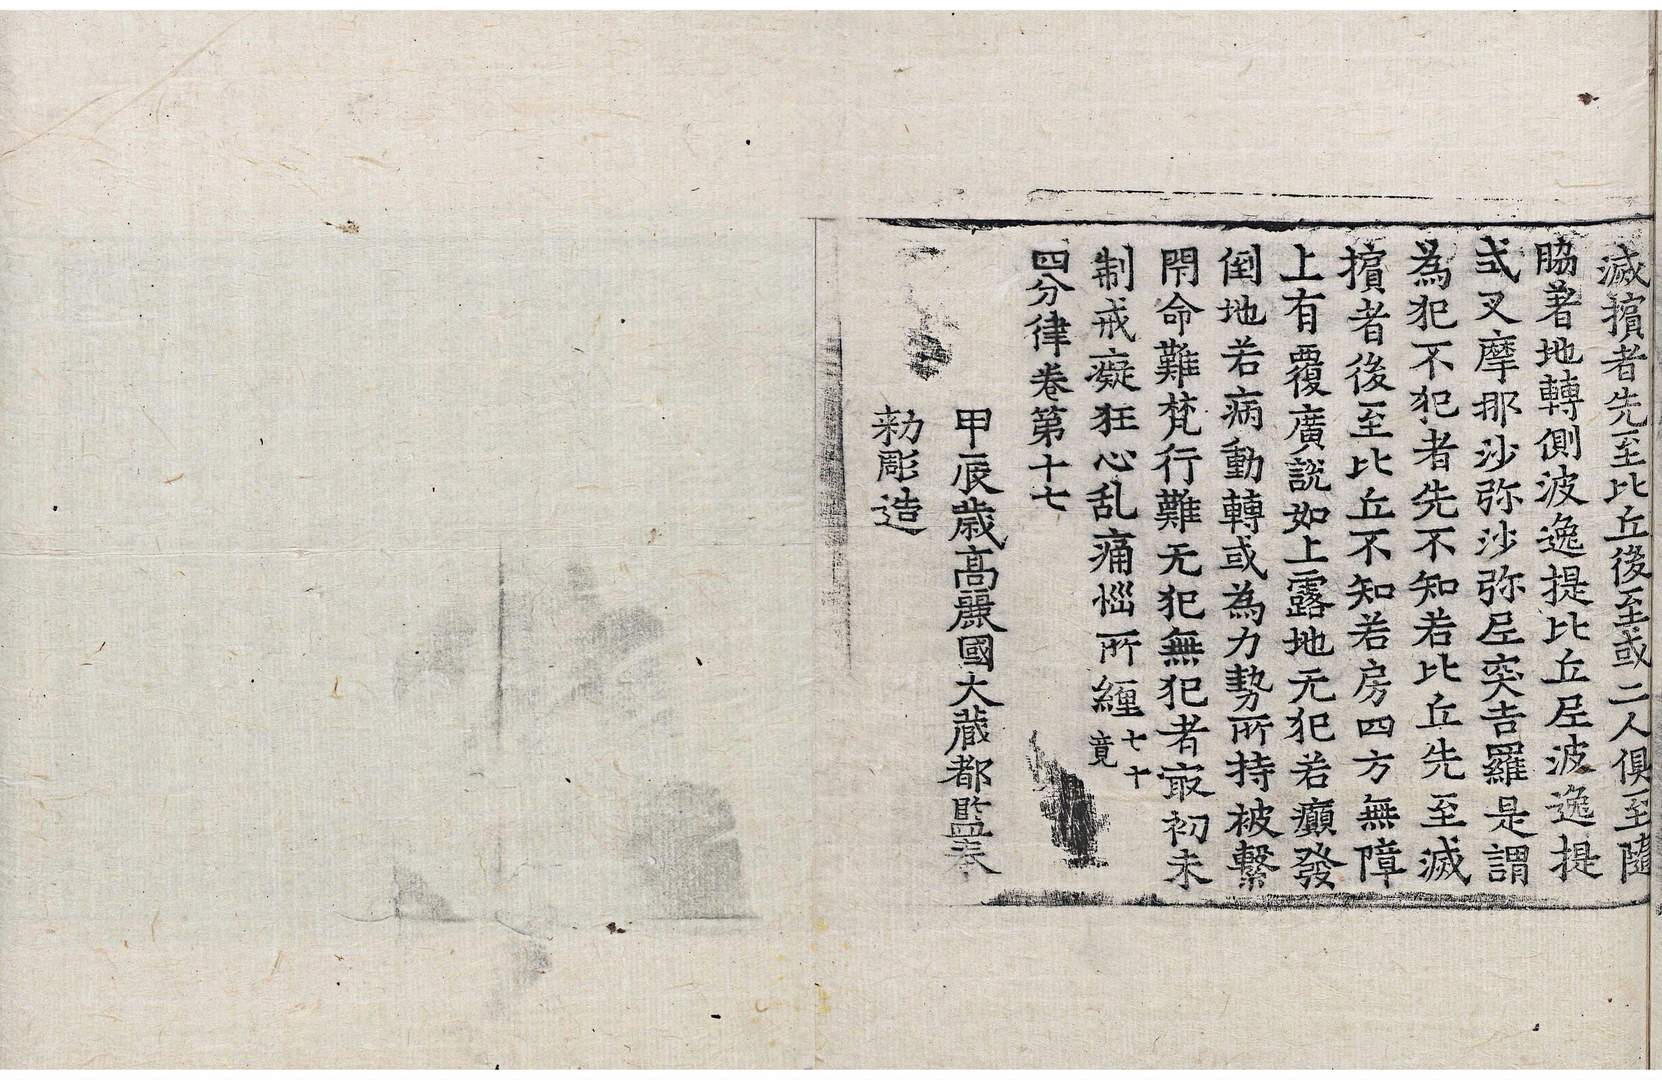 滅擯者先至比丘後至或二人俱至隨
脇著地轉側波逸提比丘尼波逸提
式叉摩那沙弥沙弥尼突吉羅是謂
為犯不犯者先不知若比丘先至滅
擯者後至比丘不知若房四方無障
上有覆廣説如上露地无犯若癲發
倒地若病動轉或為力勢所持被繫
閇命難梵行難无犯無犯者㝡初未
制戒癡狂心乱痛惱所纏七十竟
四分律卷第十七
甲辰歲高麗國大藏都監奉
勑彫造